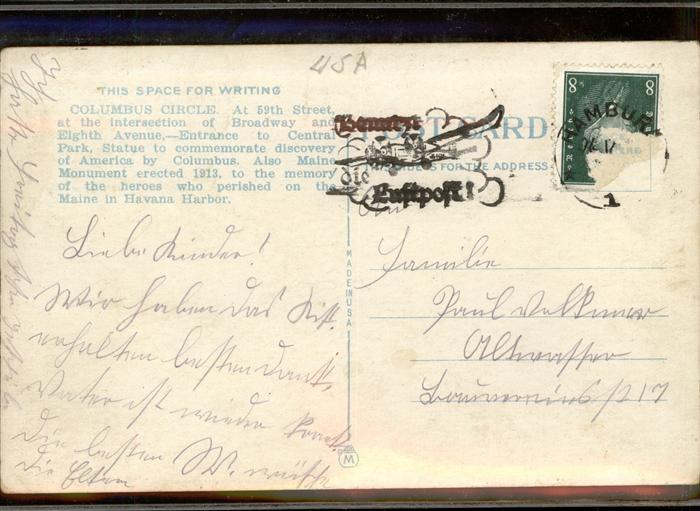 45A
THIS SPACE FOR WRITING
COLUMBUS CIRCLE. At 59th Street,
at the intersection of Broadway and
Eighth Avenue.—Entrance to Central
Park, Statue to commemorate discovery
of America by Columbus. Also Maine
Monument erected 1913, to the memory
of the heroes who perished on the
Maine in Havana Harbor.
POST CARD
THIS SIDE IS FOR THE ADDRESS
Benutzt
die
Luftpost!
8 8
HAMBURG
1
Liebe Kinder!
Wir haben das Kist.
erhalten besten dank,
Vater ist wieder krank
die besten W. wünscht
die Eltern
MADE IN USA
M
An
Familie
Paul Volkmer
Altwasser
Bauvereinsstr 17